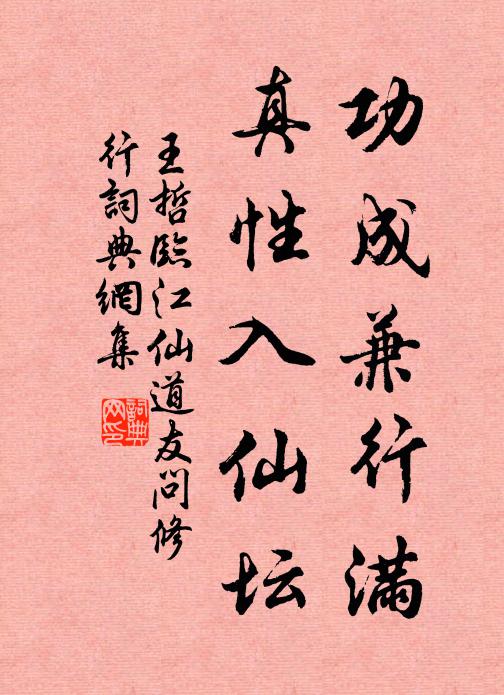 功成兼行满
真性入仙坛
王哲臨江仙道友问修
行詞典網集
詞典
网印